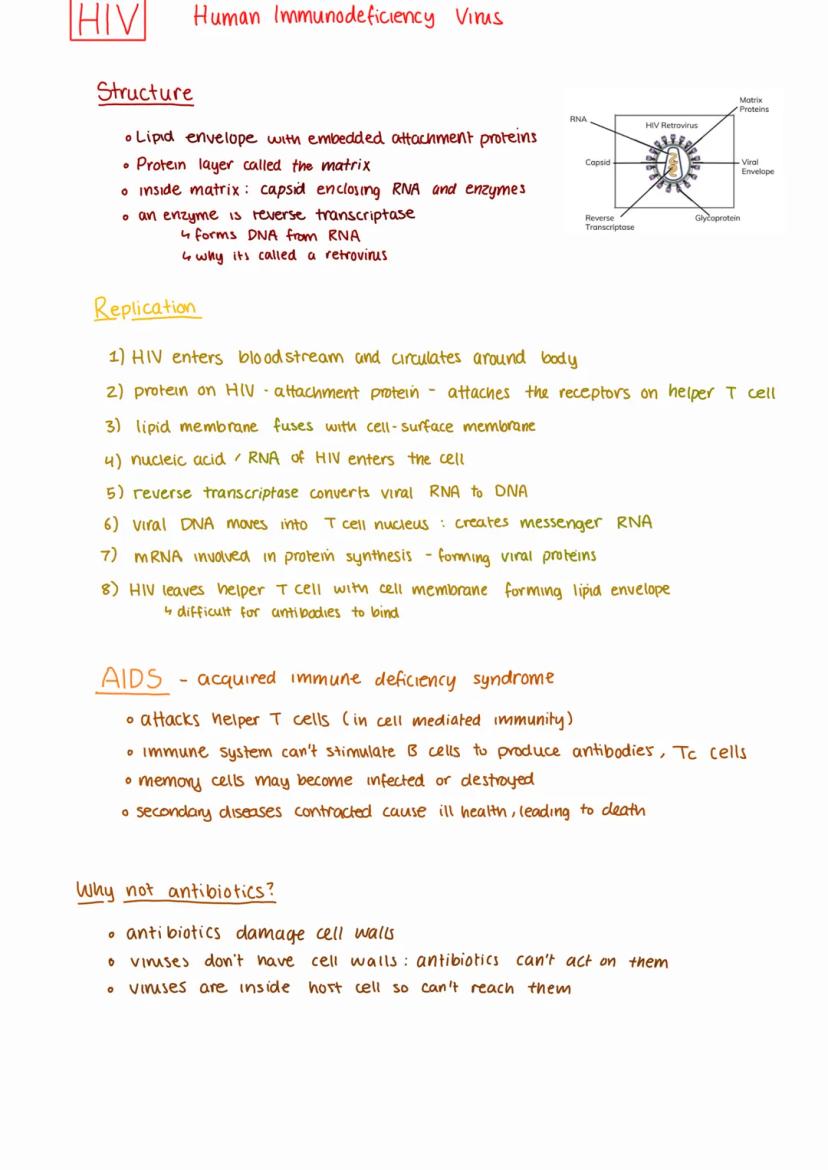 HIV Human Immunodeficiency Virus
Structure
Lipid envelope with embedded attachment proteins
Protein layer called the matrix
inside matrix: capsid enclosing RNA and enzymes
an enzyme is reverse transcriptase
↳ forms DNA from RNA
↳ why its called a retrovirus
RNA
Matrix
Proteins
HIV Retrovirus
Capsid
Viral
Envelope
Reverse
Transcriptase
Glycoprotein
Replication
1) HIV enters bloodstream and circulates around body
2) protein on HIV - attachment protein - attaches the receptors on helper T cell
3) lipid membrane fuses with cell-surface membrane
4) nucleic acid / RNA of HIV enters the cell
5) reverse transcriptase converts viral RNA to DNA
6) viral DNA moves into T cell nucleus : creates messenger RNA
7) mRNA involved in protein synthesis - forming viral proteins
8) HIV leaves helper T cell with cell membrane forming lipid envelope
↳ difficult for antibodies to bind
AIDS - acquired immune deficiency syndrome
attacks helper T cells (in cell mediated immunity)
immune system can't stimulate B cells to produce antibodies, Tc cells
memory cells may become infected or destroyed
secondary diseases contracted cause ill health, leading to death
Why not antibiotics?
antibiotics damage cell walls
viruses don't have cell walls : antibiotics can't act on them
viruses are inside host cell so can't reach them